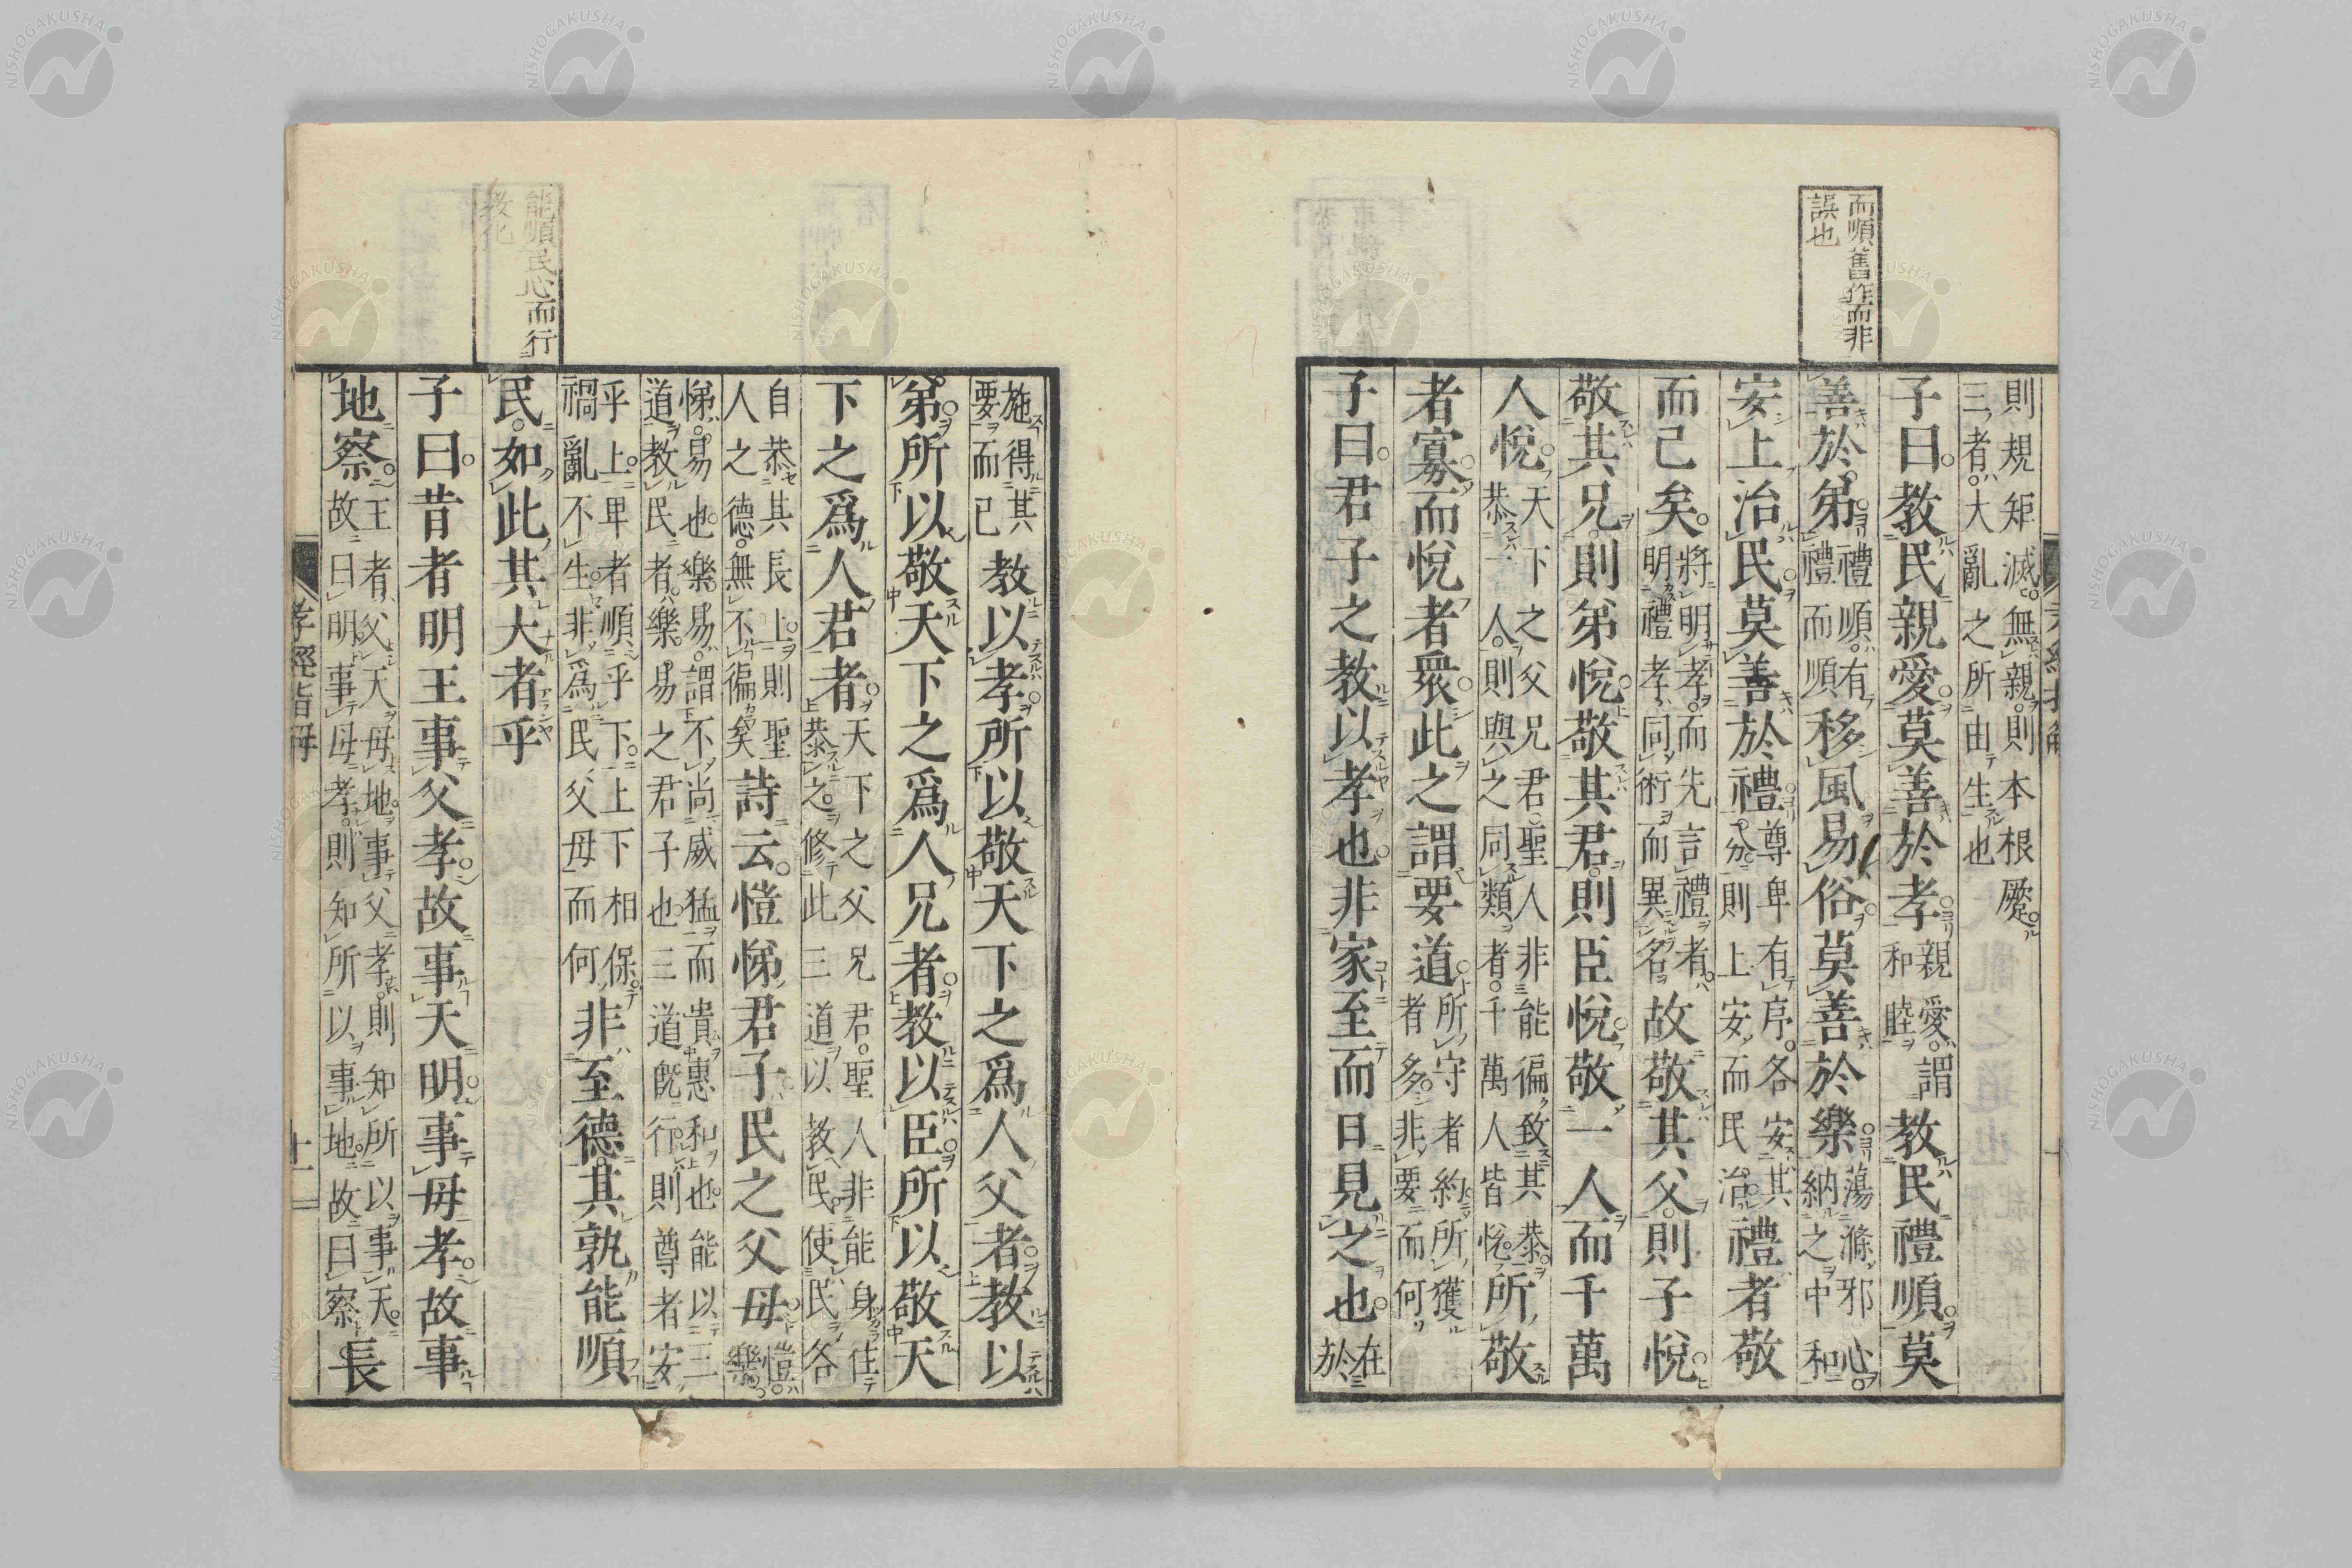 而順舊作而非
誤也
則規矩滅無親則本根廢
三者大亂之所由生也
子曰教民親愛莫善於孝親愛謂和睦教民禮順莫
善於弟禮順有禮而順移風易俗莫善於樂蕩滌邪心納之中和
安上治民莫善於禮尊卑有序各安其分則上安而民治禮者敬
而已矣將明孝而先言禮者明禮孝同術而異名故敬其父則子悅
敬其兄則弟悅敬其君則臣悅敬一人而千萬
人悅天下之父兄君聖人非能徧致其恭恭一人則與之同類者千萬人皆悅所敬
者寡而悅者衆此之謂要道所守者約所獲者多非要而何
子曰君子之教以孝也非家至而日見之也在於
能順民心而行
教化
施得其要而已教以孝所以敬天下之爲人父者教以
弟所以敬天下之爲人兄者教以臣所以敬天
下之爲人君者天下之父兄君聖人非能身住恭之修此三道以教民使民各
自恭其長上則聖人之德無不徧矣詩云愷悌君子民之父母愷樂
悌易也樂易謂不尚威猛而貴惠和也能以三道教民者樂易之君子也三道旣行則尊者安
乎上卑者順乎下上下相保禍亂不生非爲民父母而何非至德其孰能順
民如此其大者乎
子曰昔者明王事父孝故事天明事母孝故事
地察王者父天母地事父孝則知所以事天故曰明事母孝則知所以事地故曰察長